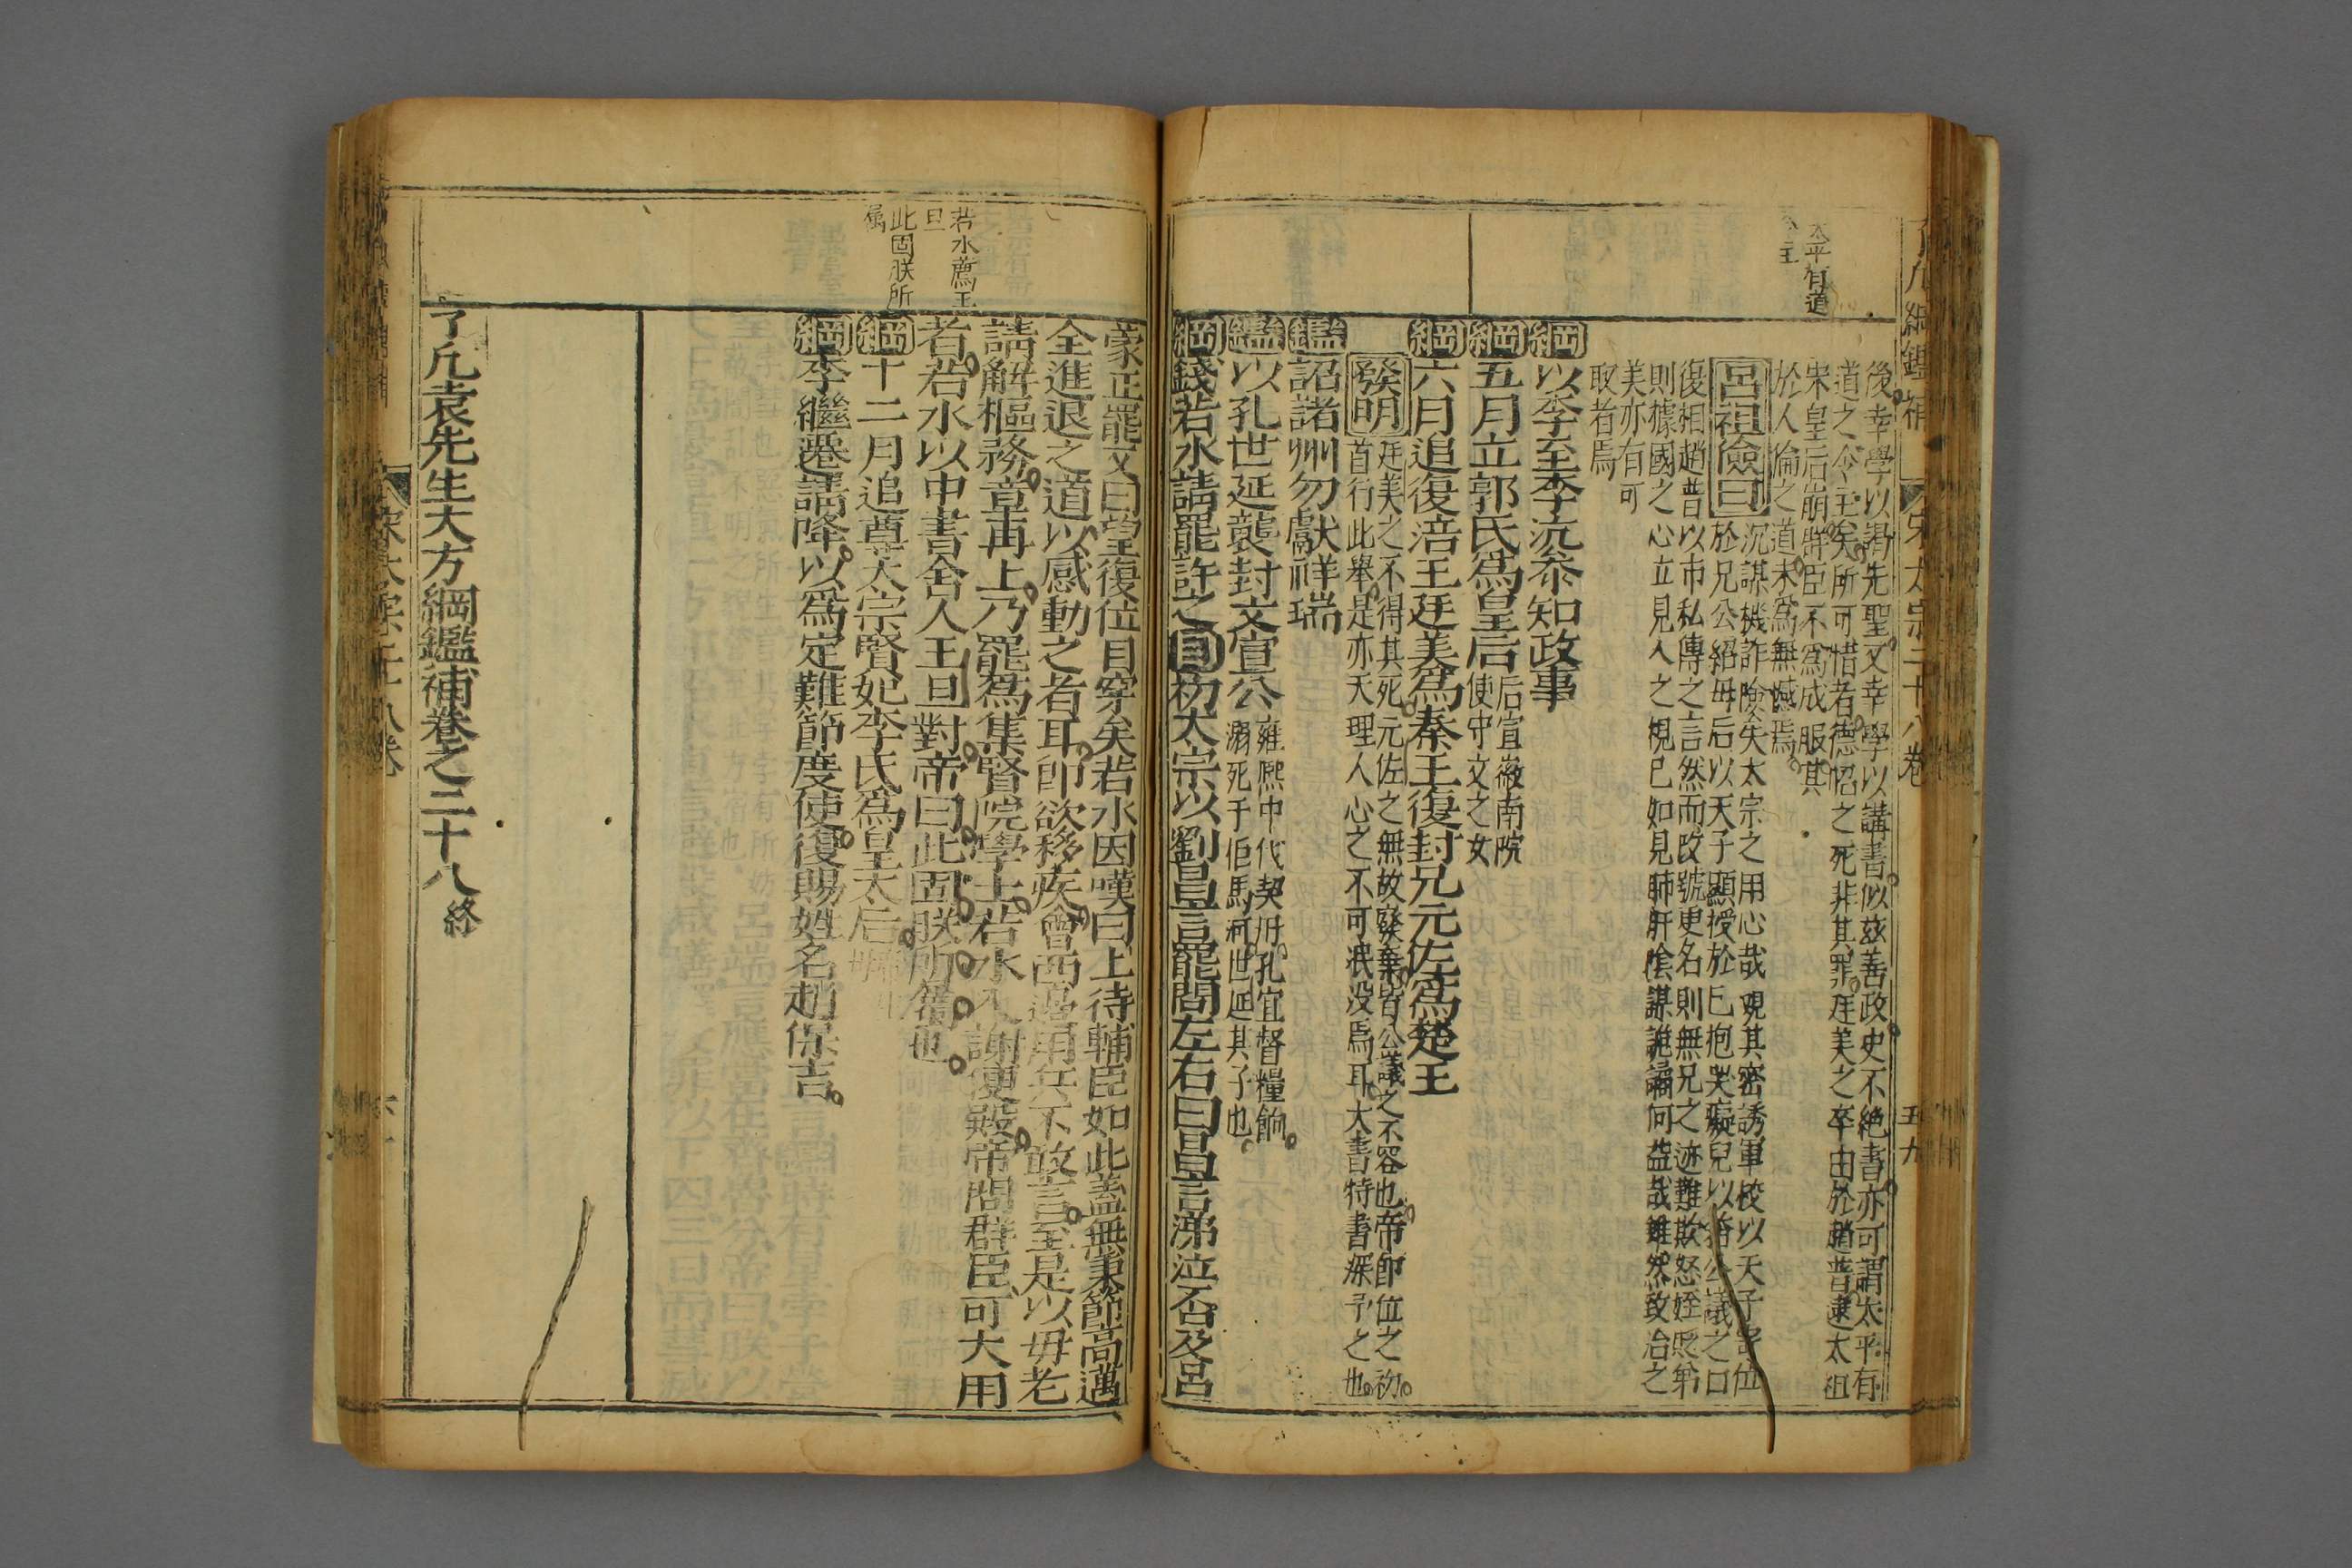 太平有道
之主
後幸學以謁先聖又幸學以講書似茲善政史不絕書亦可謂太平有
道之令主矣所可惜者德昭之死非其罪廷美之卒由於趙普逮太祖
宋皇后崩群臣不為成服其
於人倫之道未為無憾焉
呂祖儉曰沉謀機詐險矣太宗之用心哉觀其密誘軍校以天子寄位
於兄公紹毋后以天子顯授於巳抱哭癡兒以箝公議之口
復相趙普以市私傳之言然而改號更名則無兄之迹難欺怒姪貶弟
則據國之心立見人之視巳如見肺肝陰謀詭譎何益哉雖然致治之
美亦有可
取者焉
綱以李至李沆參知政事
綱五月立郭氏為皇后后宣徽南院
使守文之女
綱六月追復涪王廷美為秦王復封兄元佐為楚王
發明廷美之不得其死元佐之無故廢棄皆公議之不容也帝即位之初
首行此舉是亦天理人心之不可泯没焉耳大書特書深予之也
鑑詔諸州勿獻祥瑞
鑑以孔世延襲封文宣公雍熙中代契丹孔宜督糧餉
溺死于佢馬河世延其子也
綱錢若水請罷許之目初太宗以劉昌言罷問左右曰昌言涕泣否及呂
了凡綱鑑補 宋太宗二十八卷 五九
若水薦王
旦
此固朕所
屬
蒙正罷又曰望復位目穿矣若水因嘆曰上待輔臣如此蓋無秉節高邁
全進退之道以感動之者耳即欲移疾會西邊用兵不敢言至是以毋老
請解樞務章再上乃罷為集賢院學士若水入謝便殿帝問群臣可大用
者若水以中書舍人王旦對帝曰此固朕所屬也
綱十二月追尊太宗賢妃李氏為皇太后
綱李繼遷請降以為定難節度使復賜姓名趙保吉
了凡袁先生大方綱鑑補卷之二十八終